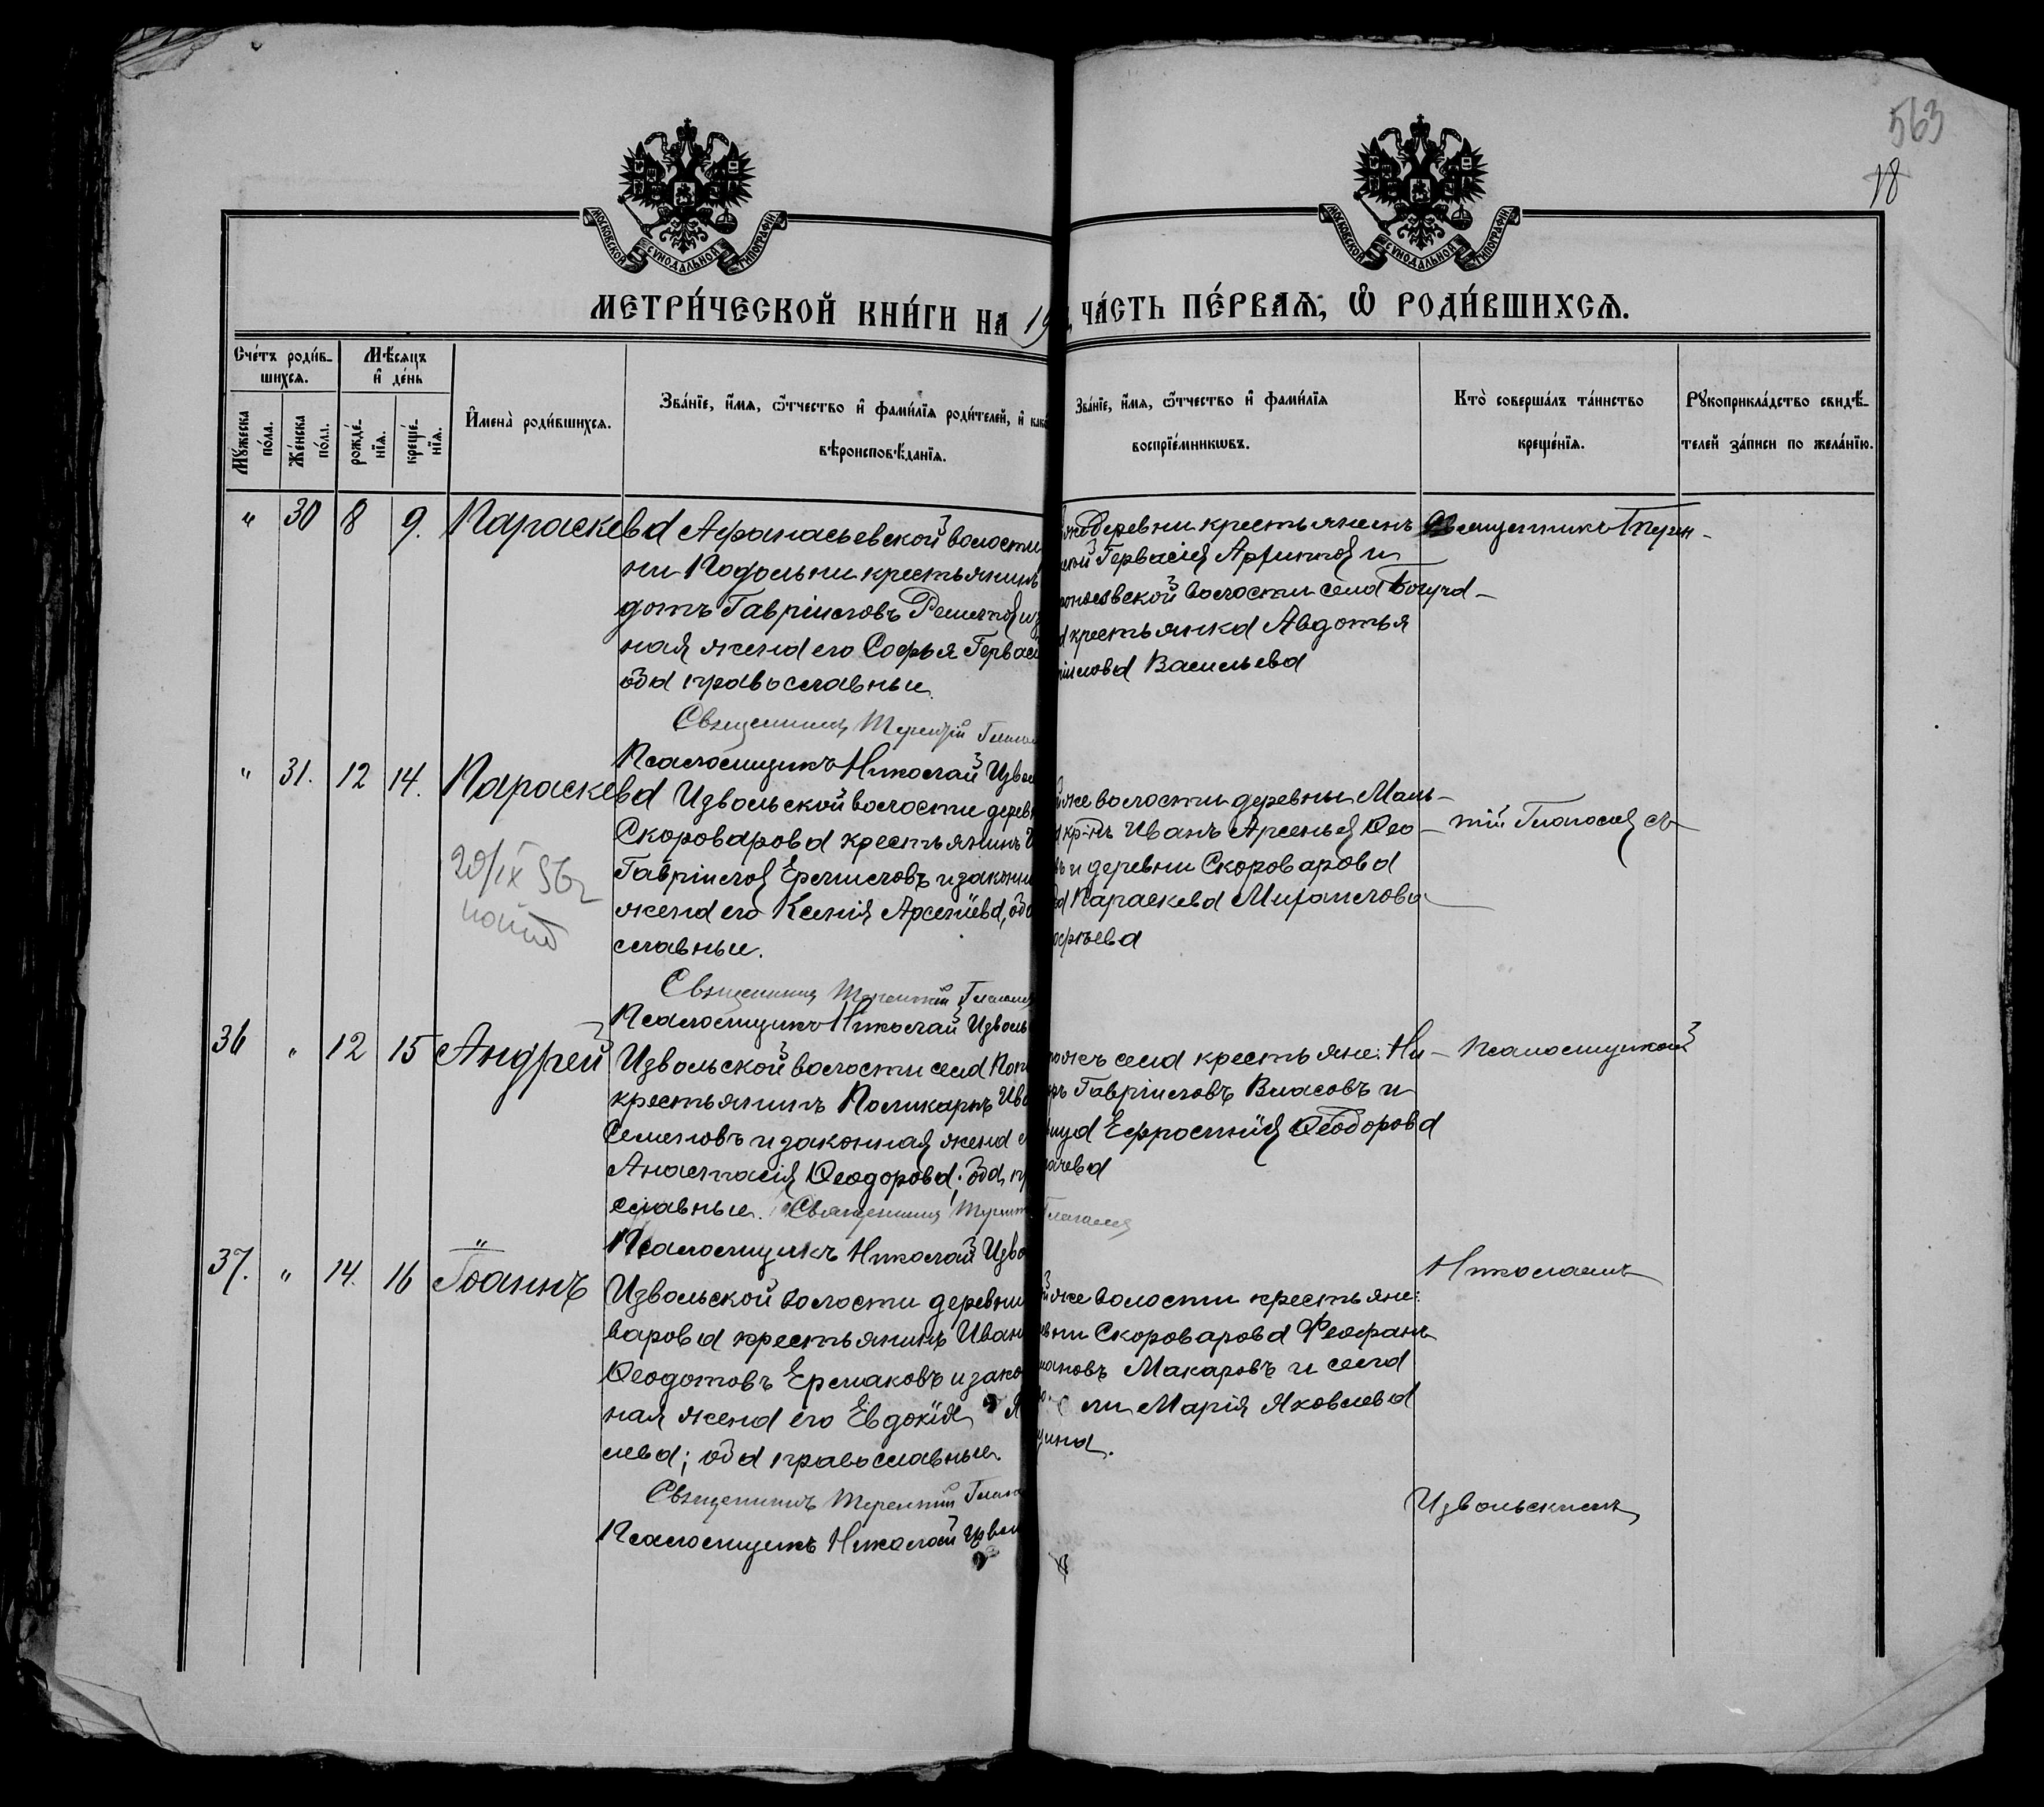 563
18
МОСКОВСКОЙ СУНОДАЛЬНОЙ ТИПОГРАФІИ
МОСКОВСКОЙ СУНОДАЛЬНОЙ ТИПОГРАФІИ
МЕТРИ́ЧЕСКОЙ КНИ́ГИ НА 19
ЧА́СТЬ ПЕ́РВАѦ, Ѿ РОДИ́ВШИХСѦ.
Сче́тъ роди́в-
шихсѧ.
Мꙋ́жеска по́ла.
Же́нска по́ла.
Мѣ́сѧцъ
и҆ де́нь
рожде́-
нїѧ.
креще́-
нїѧ.
И҆мена̀ роди́вшихсѧ.
Зва́нїе, и҆́мѧ, ѻ҆́тчество и҆ фами́лїѧ роди́телей, и҆
вѣроисповѣ́данїѧ.
Зва́нїе, и҆́мѧ, ѻ҆́тчество и҆ фами́лїѧ
воспрїе́мникѡвъ.
Кто̀ соверша́лъ та́инство
креще́нїѧ.
Рꙋкоприкла́дство свидѣ́-
телей за́писи по жела́нїю.
" 30 8 9. Параскева Афанасьевской волости
ни Подольни крестьянинъ
дотъ Гавріиловъ
ная жена его Софья Герваси
оба православные.
Священникъ Терентій
Псаломщикъ Николай Изволь
же деревни крестьянинъ
Гервасій и
ской волости села
крестьянка Авдотья
іилова Васильева
Священникъ Терен-
" 31. 12 14. Параскева Извольской волости дерев
Скороварова крестьянинъ
Гавріилов Ермиловъ и законн
жена его Ксенія Арсеніева, оба
славные.
Священникъ Терентій
Псаломщикъ Николай Изволь
20/IX 56 г
же волости деревны Маль-
кр-нъ Иванъ Арсеньев Ѳео-
и деревни Скороварова
Параскева Михаилова
офѣева
тій съ
36 " 12 15 Андрей Извольской волости села
крестьянинъ Поликарпъ Ива
Семеновъ и законная жена
Анастасія Ѳеодорова; оба
славные. Священникъ Терент
Псаломщикъ Николай Изво
тожъ села крестьяне: Ни-
Гавріиловъ Власовъ и
Ефросинія Ѳеодорова
псаломщикомъ
37. " 14. 16 Іоаннъ Извольской волости деревни
варова крестьянинъ Иванъ
Ѳеодотовъ Ермаковъ и зако
ная жена его Евдокія
лева; оба православные.
Священникъ Терентій
Псаломщикъ Николай Изволь
же волости крестьяне:
Скороварова Феофанъ
ановъ Макаровъ и села
Марія Яковлева
Николаемъ
Извольскимъ